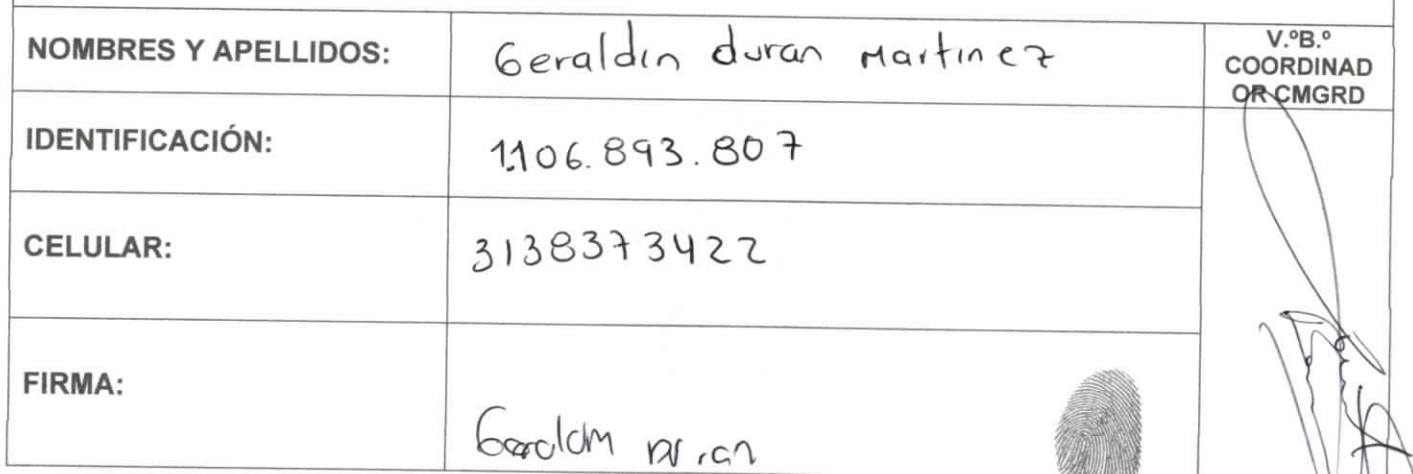 NOMBRES Y APELLIDOS: Geraldin duran Martinez
V.ºB.º
COORDINAD
OR CMGRD
IDENTIFICACIÓN: 1.106.893.807
CELULAR: 3138373422
FIRMA: